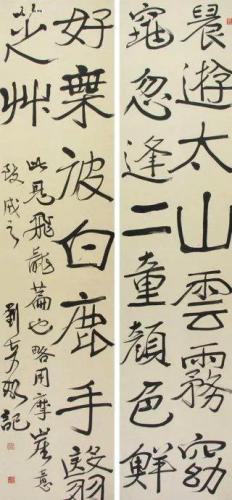 晨遊太山雲霧窈
窕忽逢二童顏色鮮
好乗彼白鹿手翳
芝艸
此飛龍篇也略用摩崖意
成之 劉 記